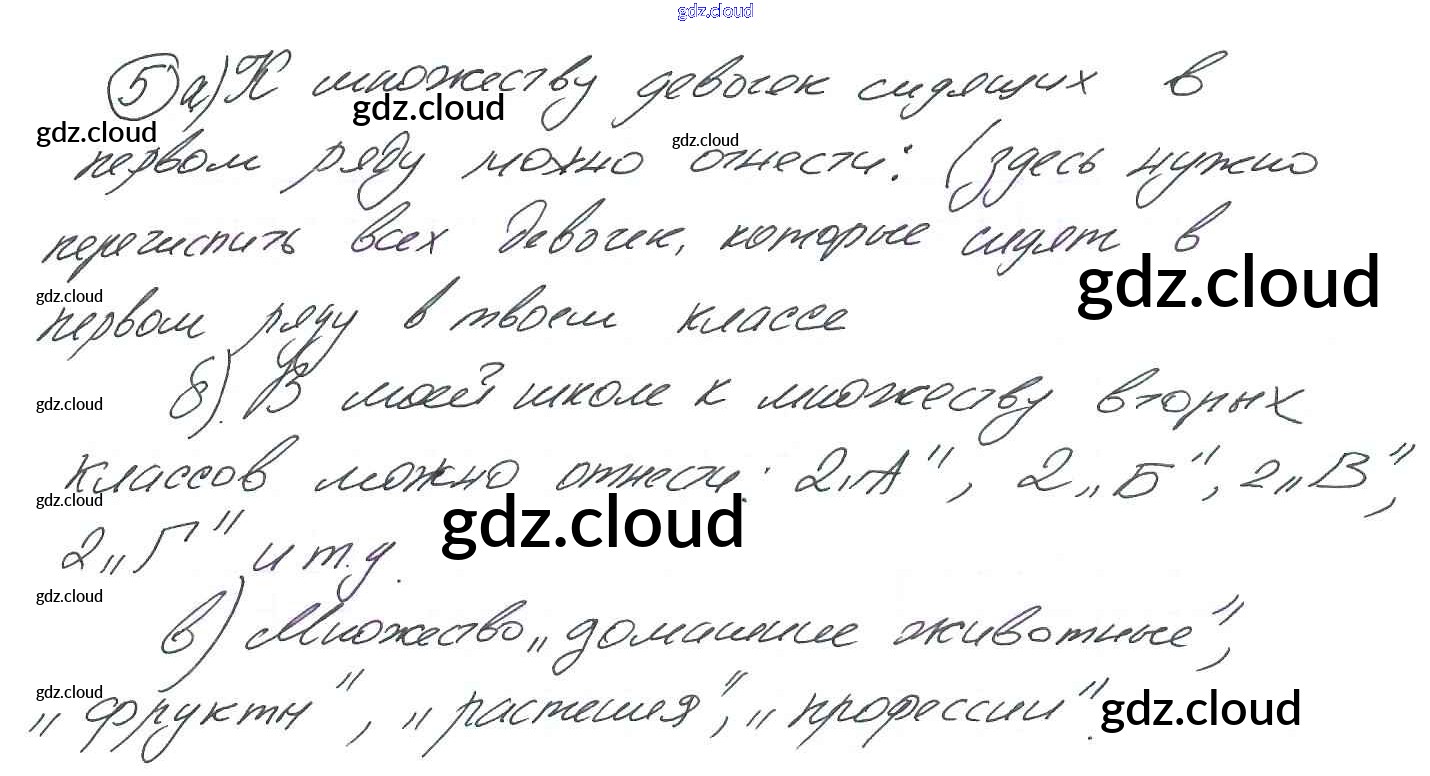 gdz.cloud
5 а) К множеству девочек сидящих в
gdz.cloud
gdz.cloud
gdz.cloud
первом ряду можно отнести: (здесь нужно
перечислить всех девочек, которые сидят в
gdz.cloud
gdz.cloud
первом ряду в твоем классе
б). В моей школе к множеству вторых
gdz.cloud
классов можно отнести: 2„А", 2„Б", 2„В",
gdz.cloud
gdz.cloud
2„Г" и т.д.
gdz.cloud
в) Множество „домашние животные",
gdz.cloud
„фрукты", „растения", „профессии".
gdz.cloud